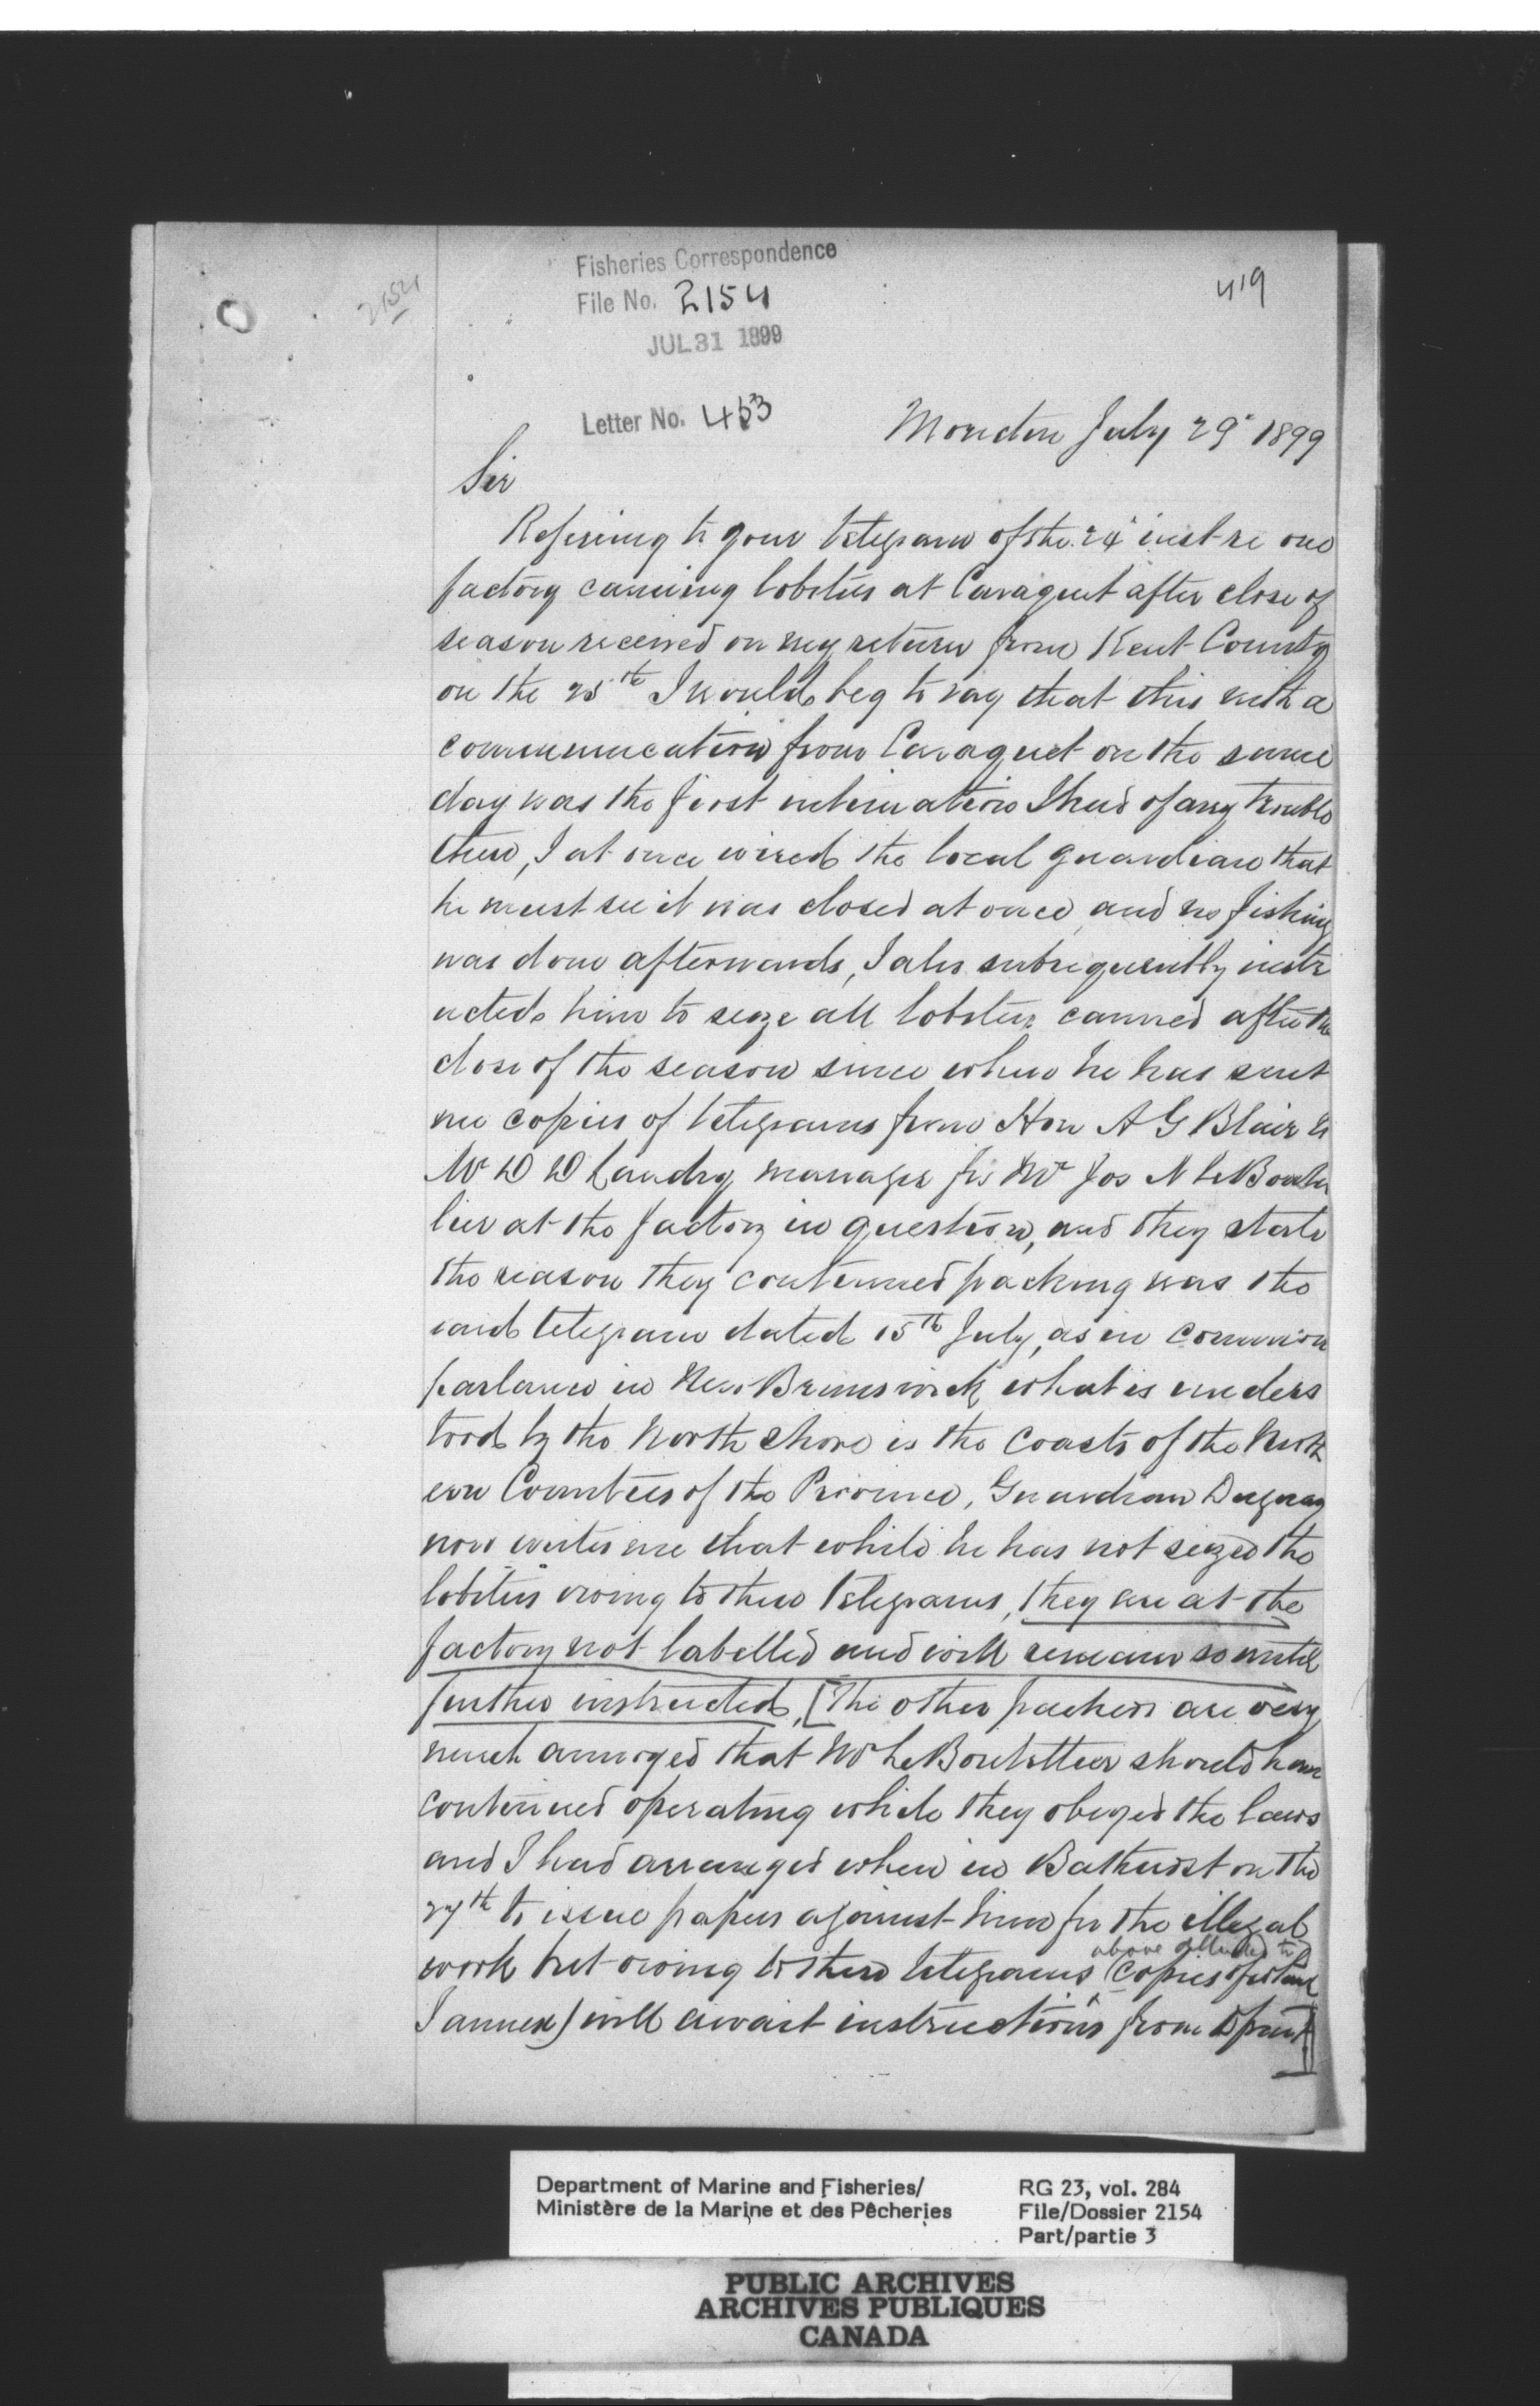 Fisheries Correspondence
File No. 2154
JUL 31 1899
2154
419
Letter No. 453
Moncton July 29" 1899
Sir
Refering to your telegram of the 24" inst re one
factory canning lobsters at Caraquet after close of
season received on my return from Kent County
on the 25th I would beg to say that this with a
communication from Caraquet on the same
day was the first intimation I had of any trouble
there, I at once wired the local guardian that
he must see it was closed at once and no fishing
was done afterwards, I also subsequently instr
ucted him to seize all lobsters canned after the
close of the season since when he has sent
me copies of telegrams from Hon A G Blair to
Mr D D Landry manager for Mr Jos N LeBouthi
lier at the factory in question, and they state
the reason they continued packing was the
said telegram dated 15th July, as in common
parlance in New Brunswick what is unders
tood by the North Shore is the Coasts of the North
ern Counties of the Province, Guardian Duguay
now writes me that while he has not seized the
lobsters owing to these telegrams, they are at the
factory not labelled and will remain so until
further instructed, [The other packers are very
much annoyed that Mr LeBouthillier should have
continued operating while they obeyed the laws
and I had arranged when in Bathurst on the
27th to issue papers against him for the illegal
work but owing to these telegrams above alluded to (copies of which
I annex) will await instructions from Dpmt]
Department of Marine and Fisheries/
Ministère de la Marine et des Pêcheries
RG 23, vol. 284
File/Dossier 2154
Part/partie 3
PUBLIC ARCHIVES
ARCHIVES PUBLIQUES
CANADA